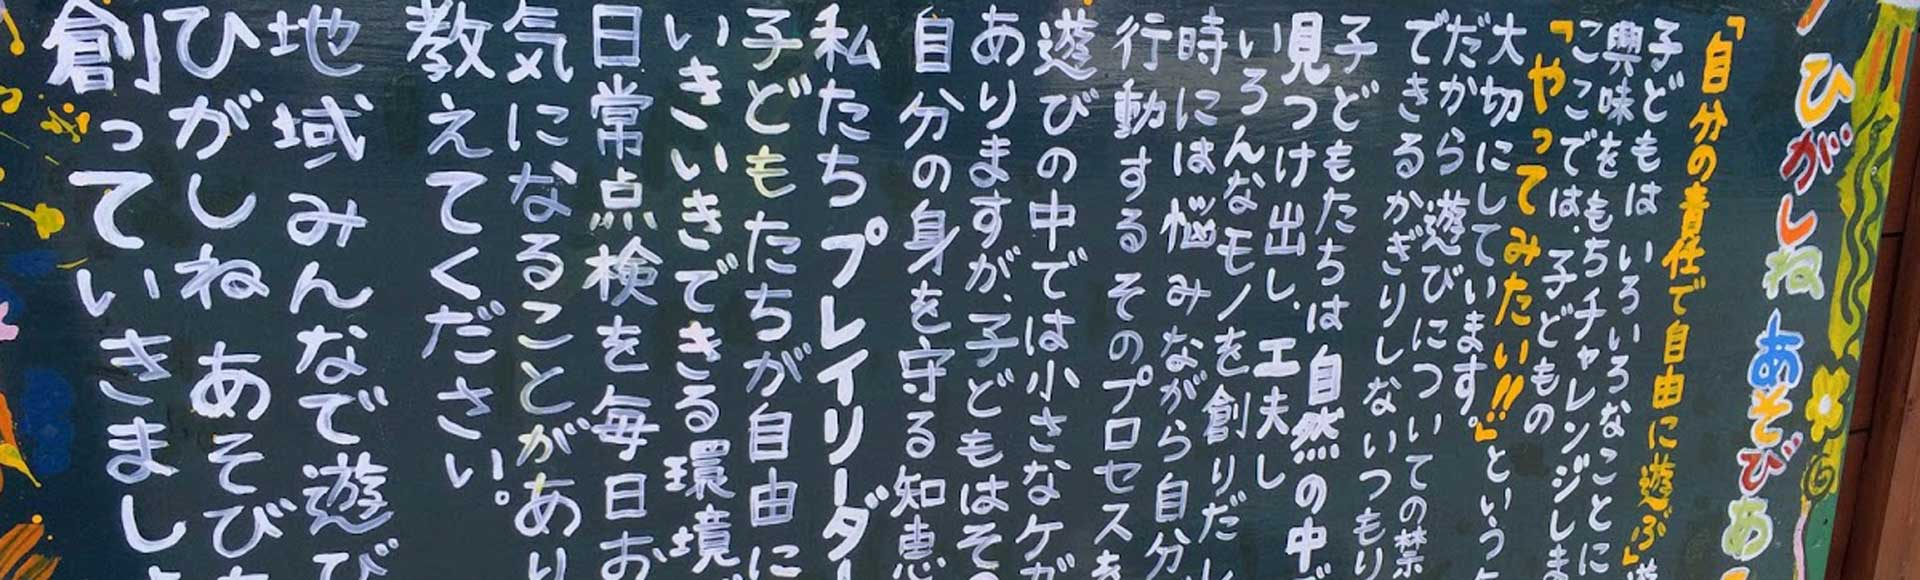 ひがしね あそびあ
「自分の責任で自由に遊ぶ」
子どもは いろいろなことに
興味をもちチャレンジしま
ここでは、子どもの
「やってみたい!!」という
大切にしています。
だから 遊びについての禁
できるかぎりしないつもり
子どもたちは 自然の中で
見つけ出し、工夫し
いろんなモノを創りだし
時には悩みながら自分
行動する そのプロセスを
遊びの中では小さなケガ
ありますが、子どもはその
自分の身を守る知恵
私たちプレイリーダー
子どもたちが自由に
いきいきできる環境
日常点検を毎日お
気になることがあり
教えてください。
地域みんなで遊び
ひがしね あそびあ
創っていきましょ